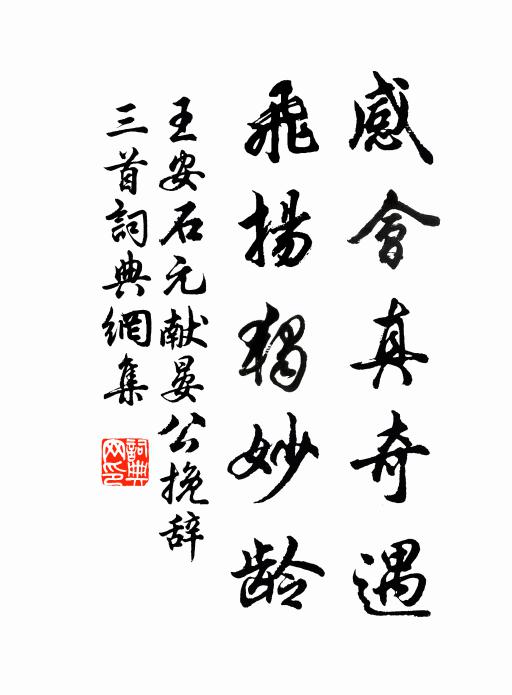 感會真奇遇
飛揚獨妙龄
王安石元献晏公挽辞
三首詞典網集
詞典網印